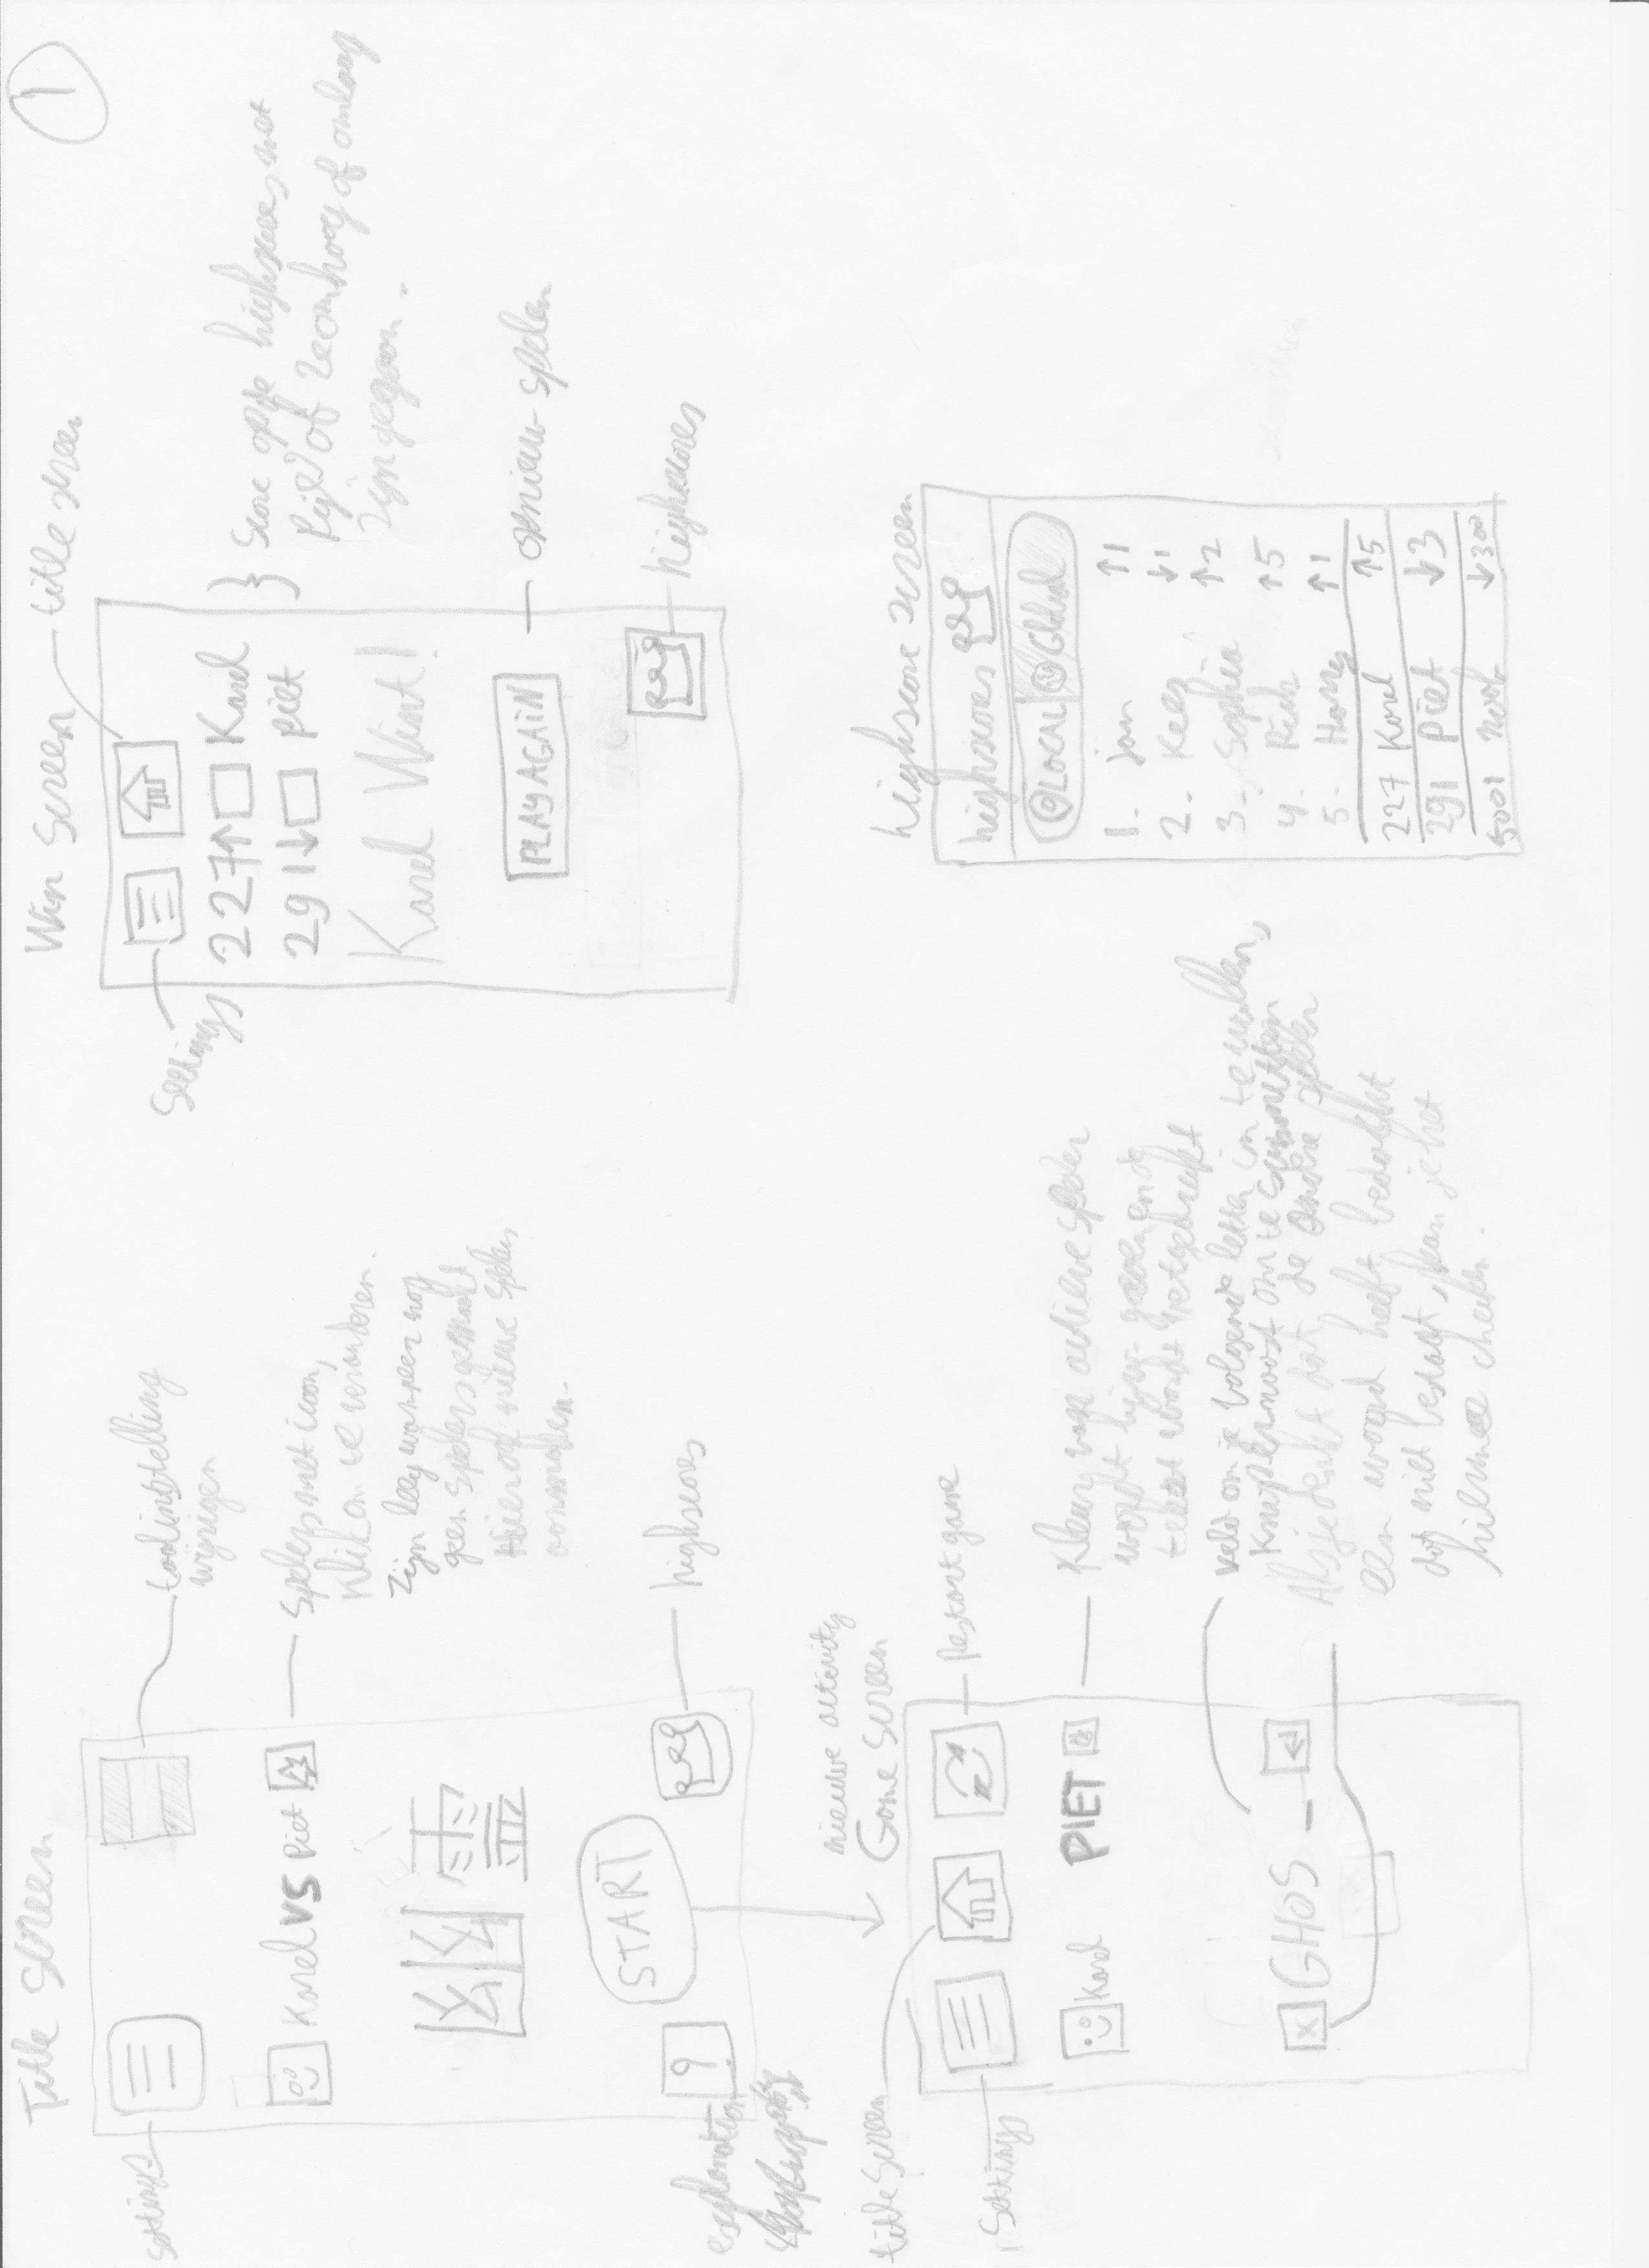 1
Title Screen
settings
taalinstelling
wijzigen
Karel VS Piet
Spelers met icon,
klik om te veranderen.
Zijn leeg wanneer nog
geen spelers gemaakt
Hierook nieuwe spelers
aanmaken.
幽靈
START
?
explanation
highscores
nieuwe activity
Game Screen
title Screen
Settings
Restart game
Karel PIET
Kleur van actieve speler
wordt bijv. groen en de
tekst wordt vetgedrukt
X GHOS _
veld om je volgende letter in te vullen,
Knopje ernaast om te submitten
Als je denkt dat de andere speler
een woord heeft bedacht
dat niet bestaat, kan je het
hiermee checken.
Win Screen
title screen
Settings
227↑ Karel
291↓ piet
Score op de highscores met
Pijl of ze omhoog of omlaag
zijn gegaan.
Karel Wint!
PLAY AGAIN
opnieuw spelen
highscores
highscore screen
highscores
LOCAL Global
1. Jan ↑1
2. Kees ↓1
3. Sophia ↑2
4. ↑5
5. Harry ↑1
227 Karel ↑5
291 Piet ↓3
5001 ↓300